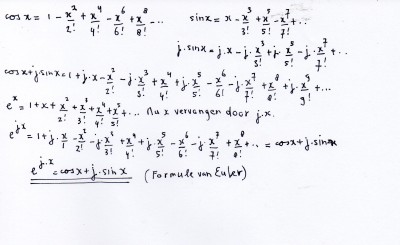 cos x = 1 - x²/2! + x⁴/4! - x⁶/6! + x⁸/8! - ...
sin x = x - x³/3! + x⁵/5! - x⁷/7! + ...
j.sin x = j.x - j.x³/3! + j.x⁵/5! - j.x⁷/7! + ...
cos x + j sin x = 1 + j.x - x²/2! - j.x³/3! + x⁴/4! + j.x⁵/5! - x⁶/6! - j.x⁷/7! + x⁸/8! + j.x⁹/9! + ...
eˣ = 1 + x + x²/2! + x³/3! + x⁴/4! + x⁵/5! + ... Nu x vervangen door j.x.
e^jx = 1 + j.x/1 - x²/2! - j.x³/3! + x⁴/4! + j.x⁵/5! - x⁶/6! - j.x⁷/7! + x⁸/8! + ... = cos x + j.sin x
e^j.x = cos x + j.sin x (Formule van Euler)